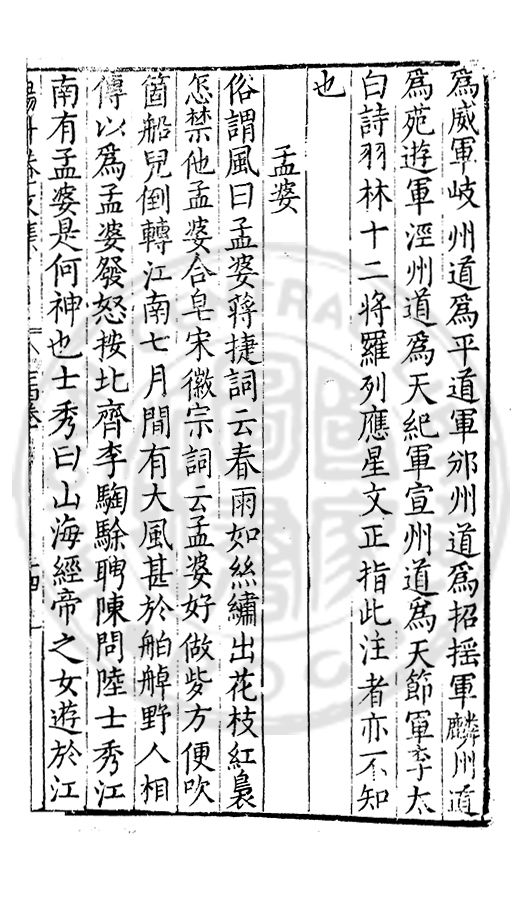 為威軍岐州道為平道軍邠州道為招揺軍麟州道
為苑遊軍涇州道為天紀軍宣州道為天節軍李太
白詩羽林十二將羅列應星文正指此注者亦不知
也
孟婆
俗謂風曰孟婆蔣捷詞云春雨如絲繡出花枝紅裊
怎禁他孟婆合皂宋徽宗詞云孟婆好做些方便吹
箇船兒倒轉江南七月間有大風甚於舶䑲野人相
傳以為孟婆發怒按北齊李騊駼聘陳問陸士秀江
南有孟婆是何神也士秀曰山海經帝之女遊於江